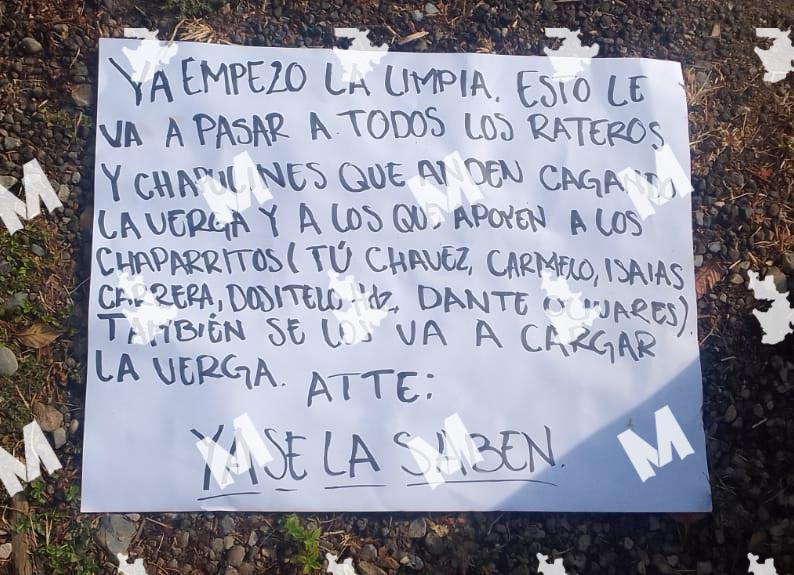 YA EMPEZO LA LIMPIA. ESTO LE
VA A PASAR A TODOS LOS RATEROS
Y CHAPULINES QUE ANDEN CAGANDO
LA VERGA Y A LOS QUE APOYEN A LOS
CHAPARRITOS (TÚ CHAVEZ, CARMELO, ISAIAS
CARRERA, DOSITELO Hdz, DANTE OLIVARES).
TAMBIÉN SE LOS VA A CARGAR
LA VERGA. ATTE:
YA SE LA SABEN.
M
M
M
M
M
M
M
M